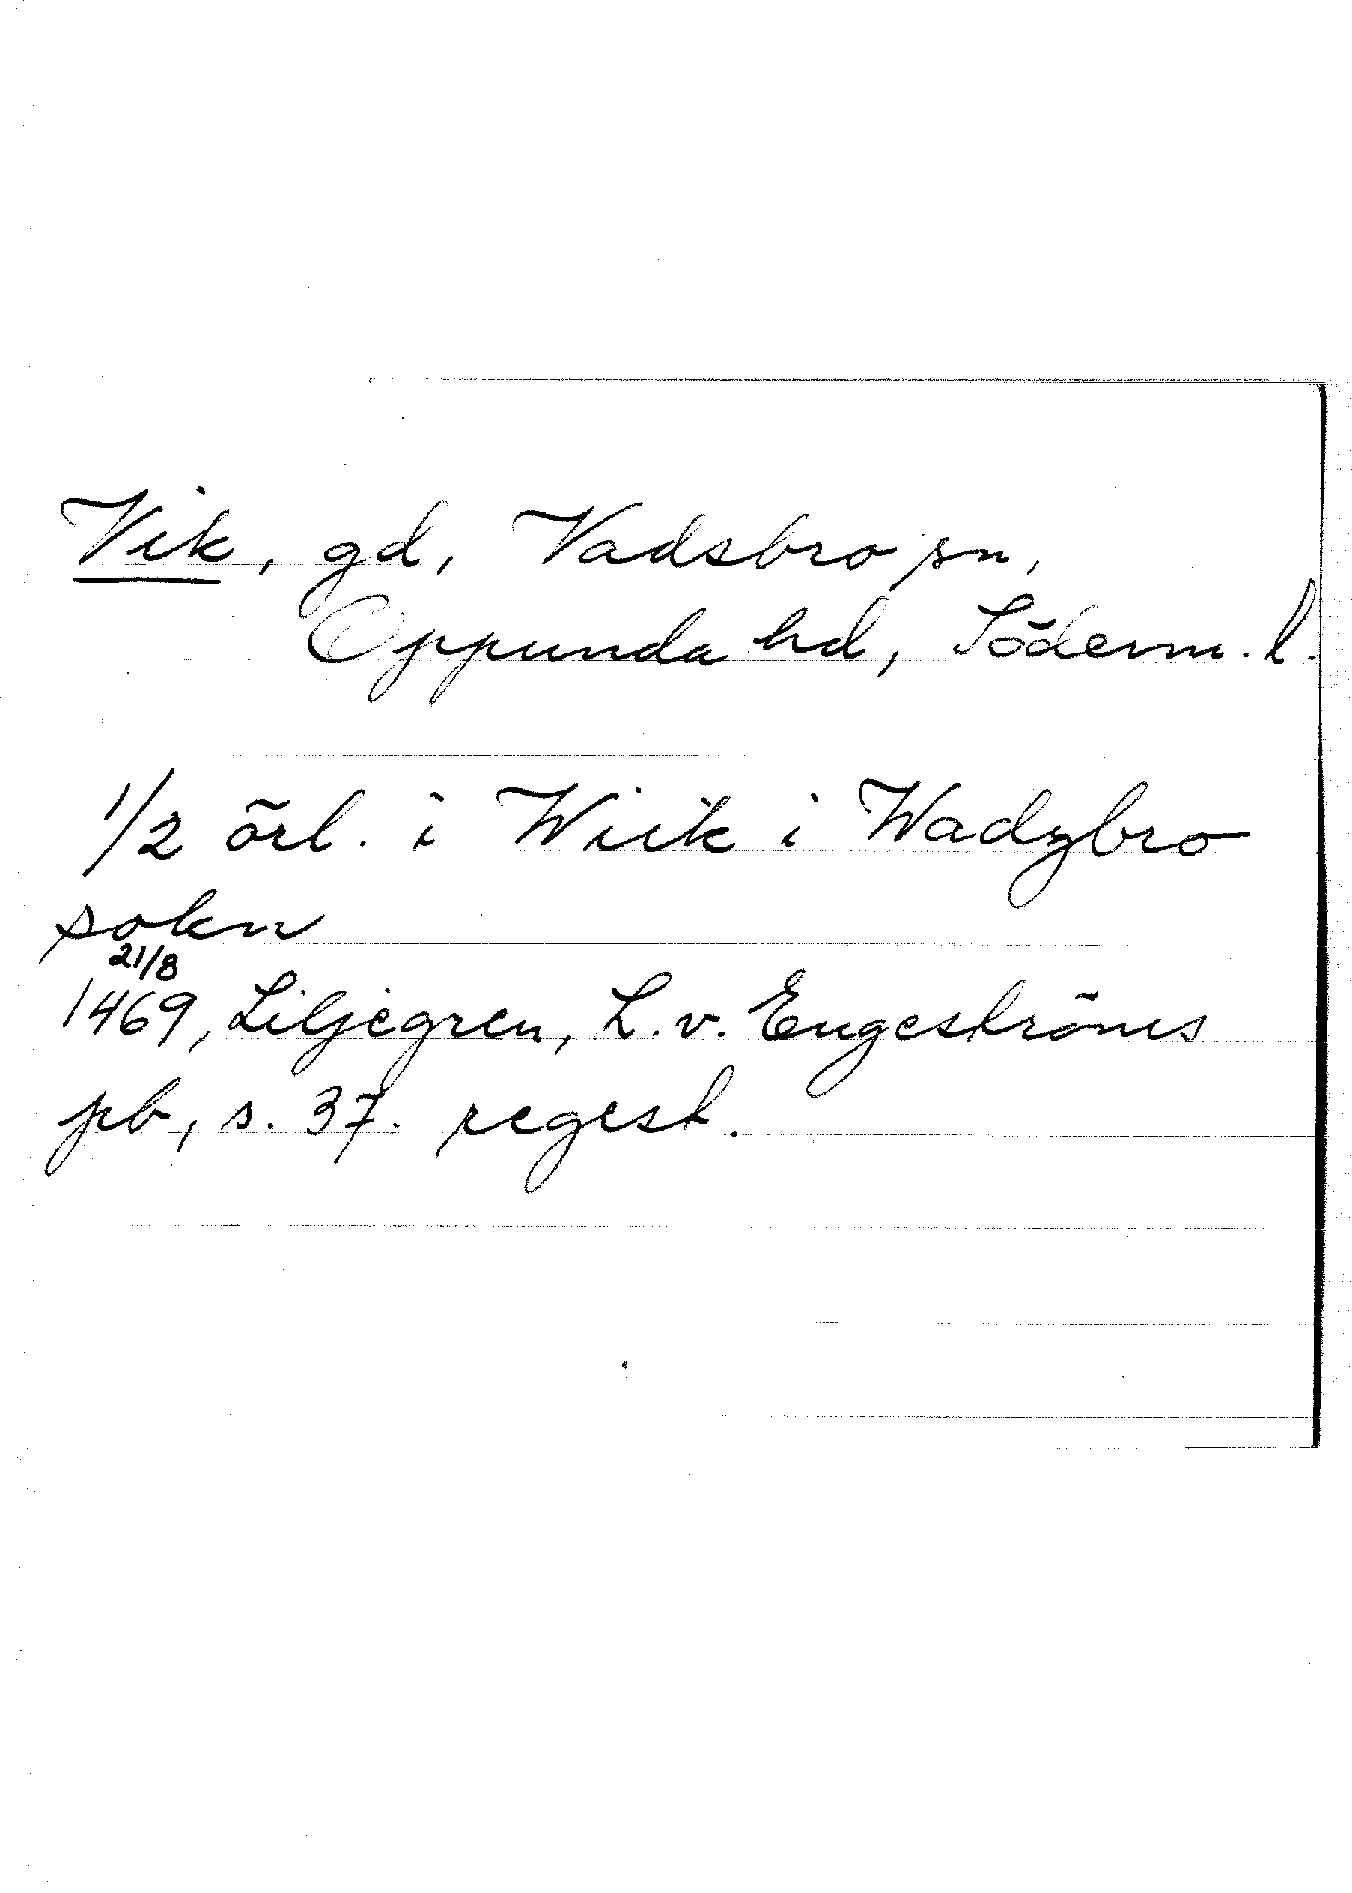 Vik, gd, Vadsbro sn,
Oppunda hd, Söderm. l.
1/2 örl. i Wiik i Wadzbro
sokn
21/8
1469, Liljegren, L. v. Engeströms
pb, s. 37. regest.